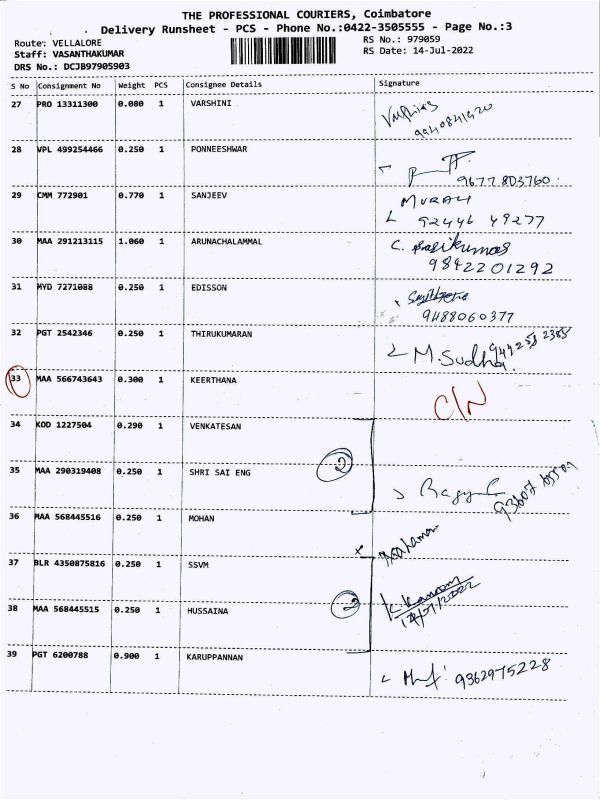 THE PROFESSIONAL COURIERS, Coimbatore
Delivery Runsheet - PCS - Phone No.:0422-3505555 - Page No.:3
Route: VELLALORE
RS No.: 979059
Staff: VASANTHAKUMAR
RS Date: 14-Jul-2022
DRS No.: DCJB97905903
S No Consignment No Weight PCS Consignee Details Signature
27 PRO 13311300 0.080 1 VARSHINI
9940841420
28 VPL 499254466 0.250 1 PONNEESHWAR
9677803760
29 CMM 772901 0.770 1 SANJEEV MURALI
92446 49277
30 MAA 291213115 1.060 1 ARUNACHALAMMAL C. Sasikumar
9842201292
31 MYD 7271088 0.250 1 EDISSON
9488060377
32 PGT 2542346 0.250 1 THIRUKUMARAN M. Sudha
33 MAA 566743643 0.300 1 KEERTHANA C/N
34 KOD 1227504 0.290 1 VENKATESAN
2
35 MAA 290319408 0.250 1 SHRI SAI ENG
36 MAA 568445516 0.250 1 MOHAN
37 BLR 4350875816 0.250 1 SSVM
38 MAA 568445515 0.250 1 HUSSAINA 2
14/07/2022
39 PGT 6200788 0.900 1 KARUPPANNAN 9362975228